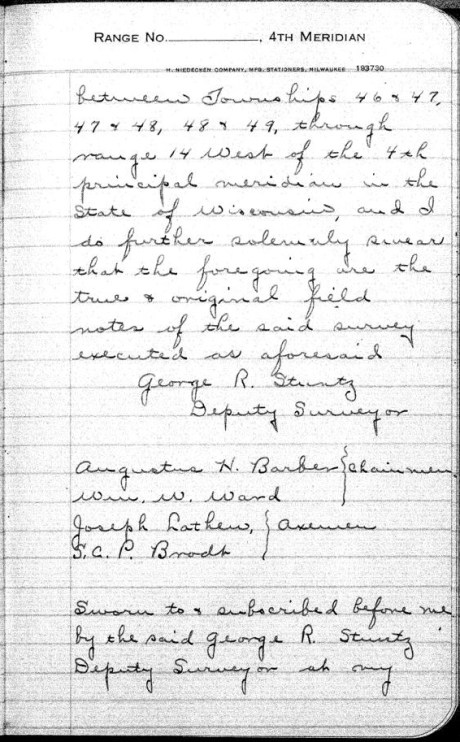 RANGE NO. , 4TH MERIDIAN
H. NIEDECKEN COMPANY, MFG. STATIONERS, MILWAUKEE 193730
between Townships 46 & 47,
47 & 48, 48 & 49, through
range 14 West of the 4th
principal meridian in the
State of Wisconsin, and I
do further solemnly swear
that the foregoing are the
true & original field
notes of the said survey
executed as aforesaid
George R. Stuntz
Deputy Surveyor
Augustus H. Barber } Chainmen
Wm. W. Ward
Joseph Lathew, } Axemen
S. C. P. Brodt
Sworn to & subscribed before me
by the said George R. Stuntz
Deputy Surveyor at my